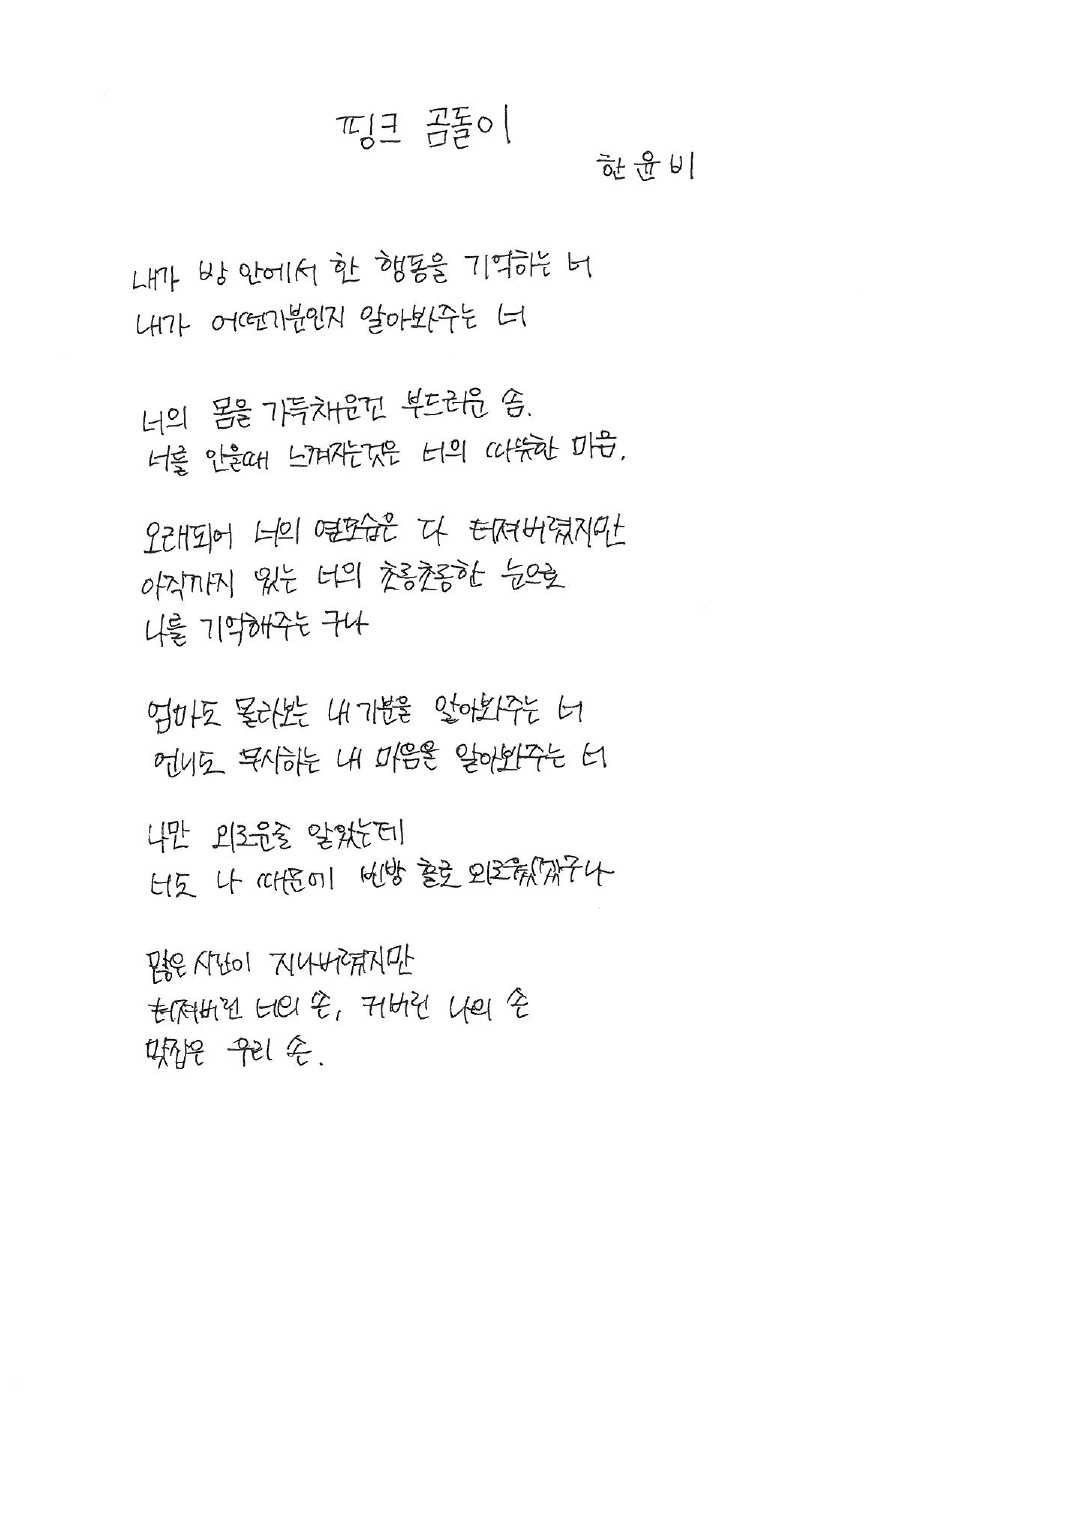 핑크 곰돌이
한윤비
내가 방 안에서 한 행동을 기억하는 너
내가 어떤기분인지 알아봐주는 너
너의 몸을 가득채운건 부드러운 솜.
너를 안을때 느껴지는것은 너의 따뜻한 마음.
오래되어 너의 옆모습은 다 터져버렸지만
아직까지 있는 너의 초롱초롱한 눈으로
나를 기억해주는 구나
엄마도 몰라보는 내 기분을 알아봐주는 너
언니도 무시하는 내 마음을 알아봐주는 너
나만 외로운줄 알았는데
너도 나 때문에 빈방 홀로 외로웠겠구나
많은 시간이 지나버렸지만
터져버린 너의 손, 커버린 나의 손
맞잡은 우리 손.